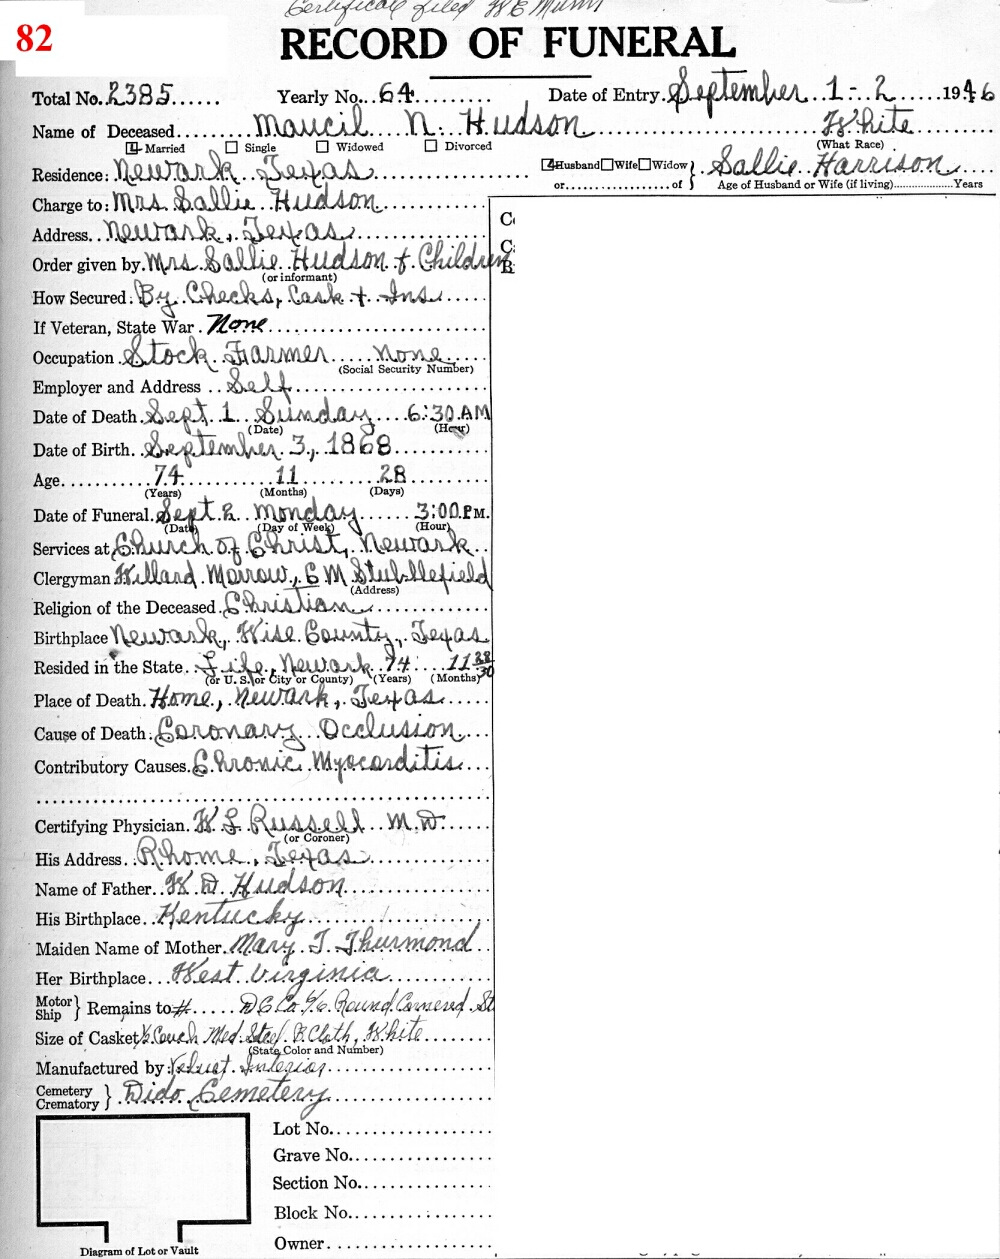 Certificate filed W E Munn
82
RECORD OF FUNERAL
Total No. 2385 Yearly No. 64 Date of Entry. September 1-2 1946
Name of Deceased Maucil N. Hudson White
Married Single Widowed Divorced (What Race)
Residence: Newark Texas Husband Wife Widow } Sallie Harrison
or of Age of Husband or Wife (if living) Years
Charge to: Mrs Sallie Hudson
C
Address Newark, Texas
C
Order given by. Mrs. Sallie Hudson + Children
B
(or informant)
How Secured. By Checks, Cash + Ins
If Veteran, State War. None
Occupation Stock Farmer None
(Social Security Number)
Employer and Address Self
Date of Death. Sept. 1 Sunday 6:30 AM
(Date) (Hour)
Date of Birth. September 3, 1868
Age 74 11 28
(Years) (Months) (Days)
Date of Funeral. Sept. 2 Monday 3:00 P.M.
(Date) (Day of Week) (Hour)
Services at Church of Christ, Newark
Clergyman Willard Morrow, C M Stubblefield
(Address)
Religion of the Deceased. Christian
Birthplace Newark, Wise County, Texas
Resided in the State. Life, Newark 74 11 28/30
(or U. S. or City or County) (Years) (Months)
Place of Death. Home, Newark, Texas
Cause of Death: Coronary Occlusion
Contributory Causes. Chronic Myocarditis
Certifying Physician. W L Russell M.D.
(or Coroner)
His Address. Rhome, Texas
Name of Father. W D Hudson
His Birthplace. Kentucky
Maiden Name of Mother. Mary T. Thurmond
Her Birthplace West Virginia
Motor Ship } Remains to # D C Co 4/6 Round Cornered St
Size of Casket ½ Couch Med. Steel B. Cloth, White
(State Color and Number)
Manufactured by: Velvet Interior
Cemetery Crematory } Dido Cemetery
Lot No.
Grave No.
Section No.
Block No.
Owner
Diagram of Lot or Vault